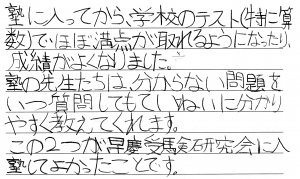 塾に入ってから、学校のテスト(特に算
数)でほぼ満点が取れるようになったり、
成績がよくなりました。
塾の先生たちは、分からない問題を
いつ質問してもていねいに分かり
やすく教えてくれます。
この2つが早慶受験研究会に入
塾してよかったことです。